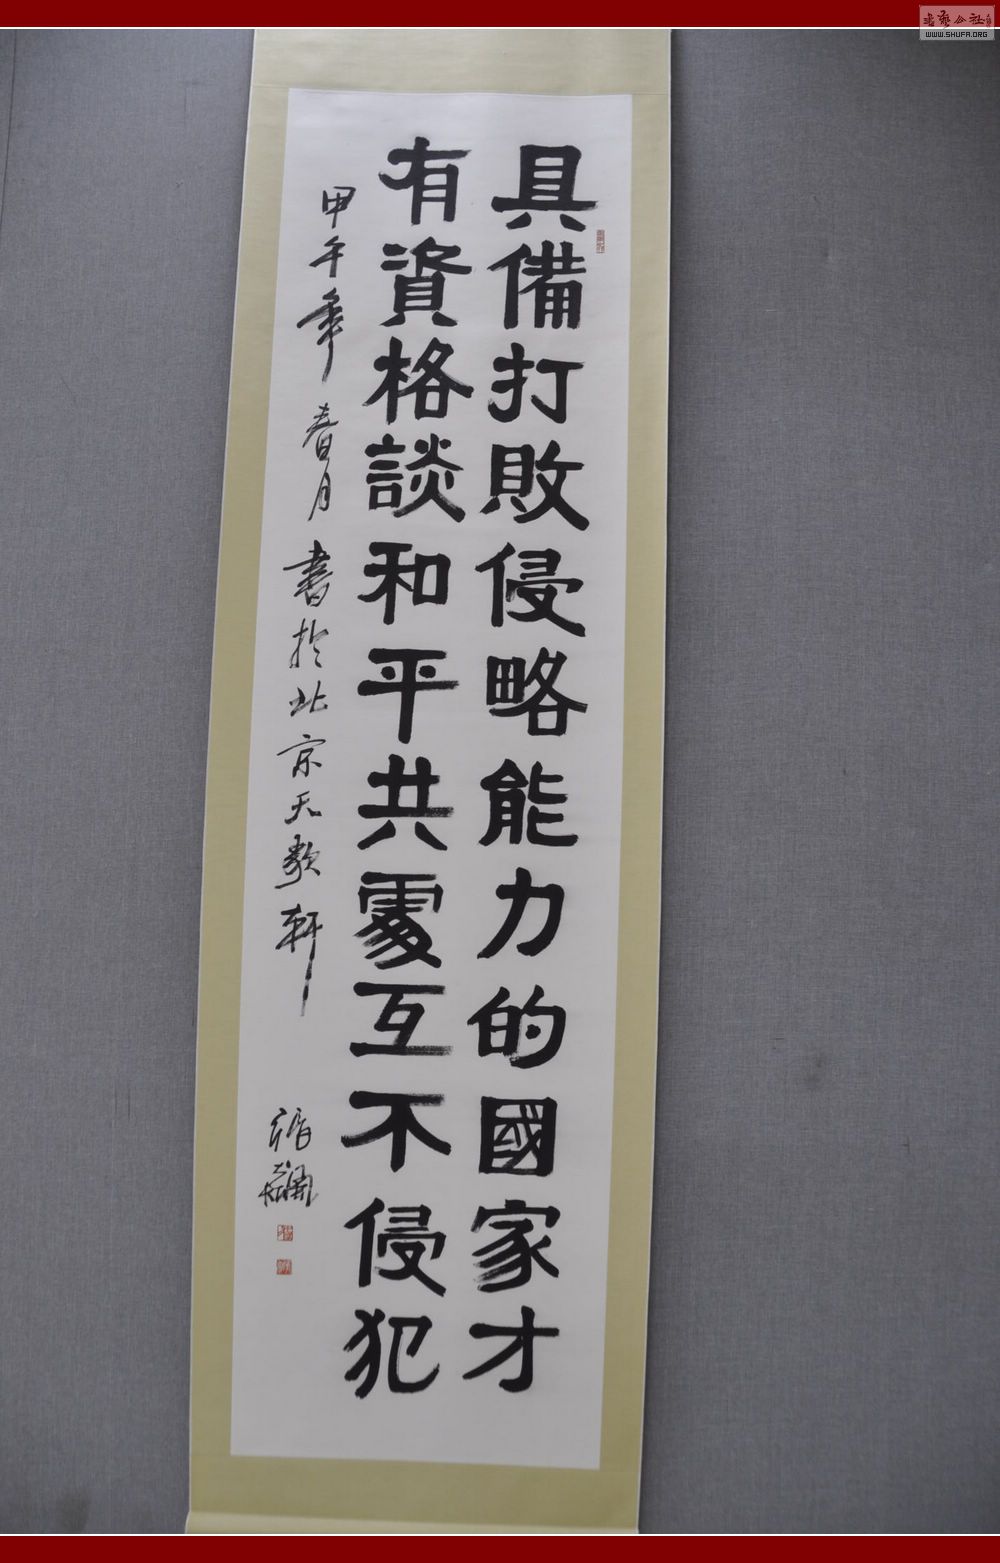 具備打敗侵略能力的國家才
有資格談和平共處互不侵犯
甲午年春月書於北京天歌軒
WWW.SHUFA.ORG